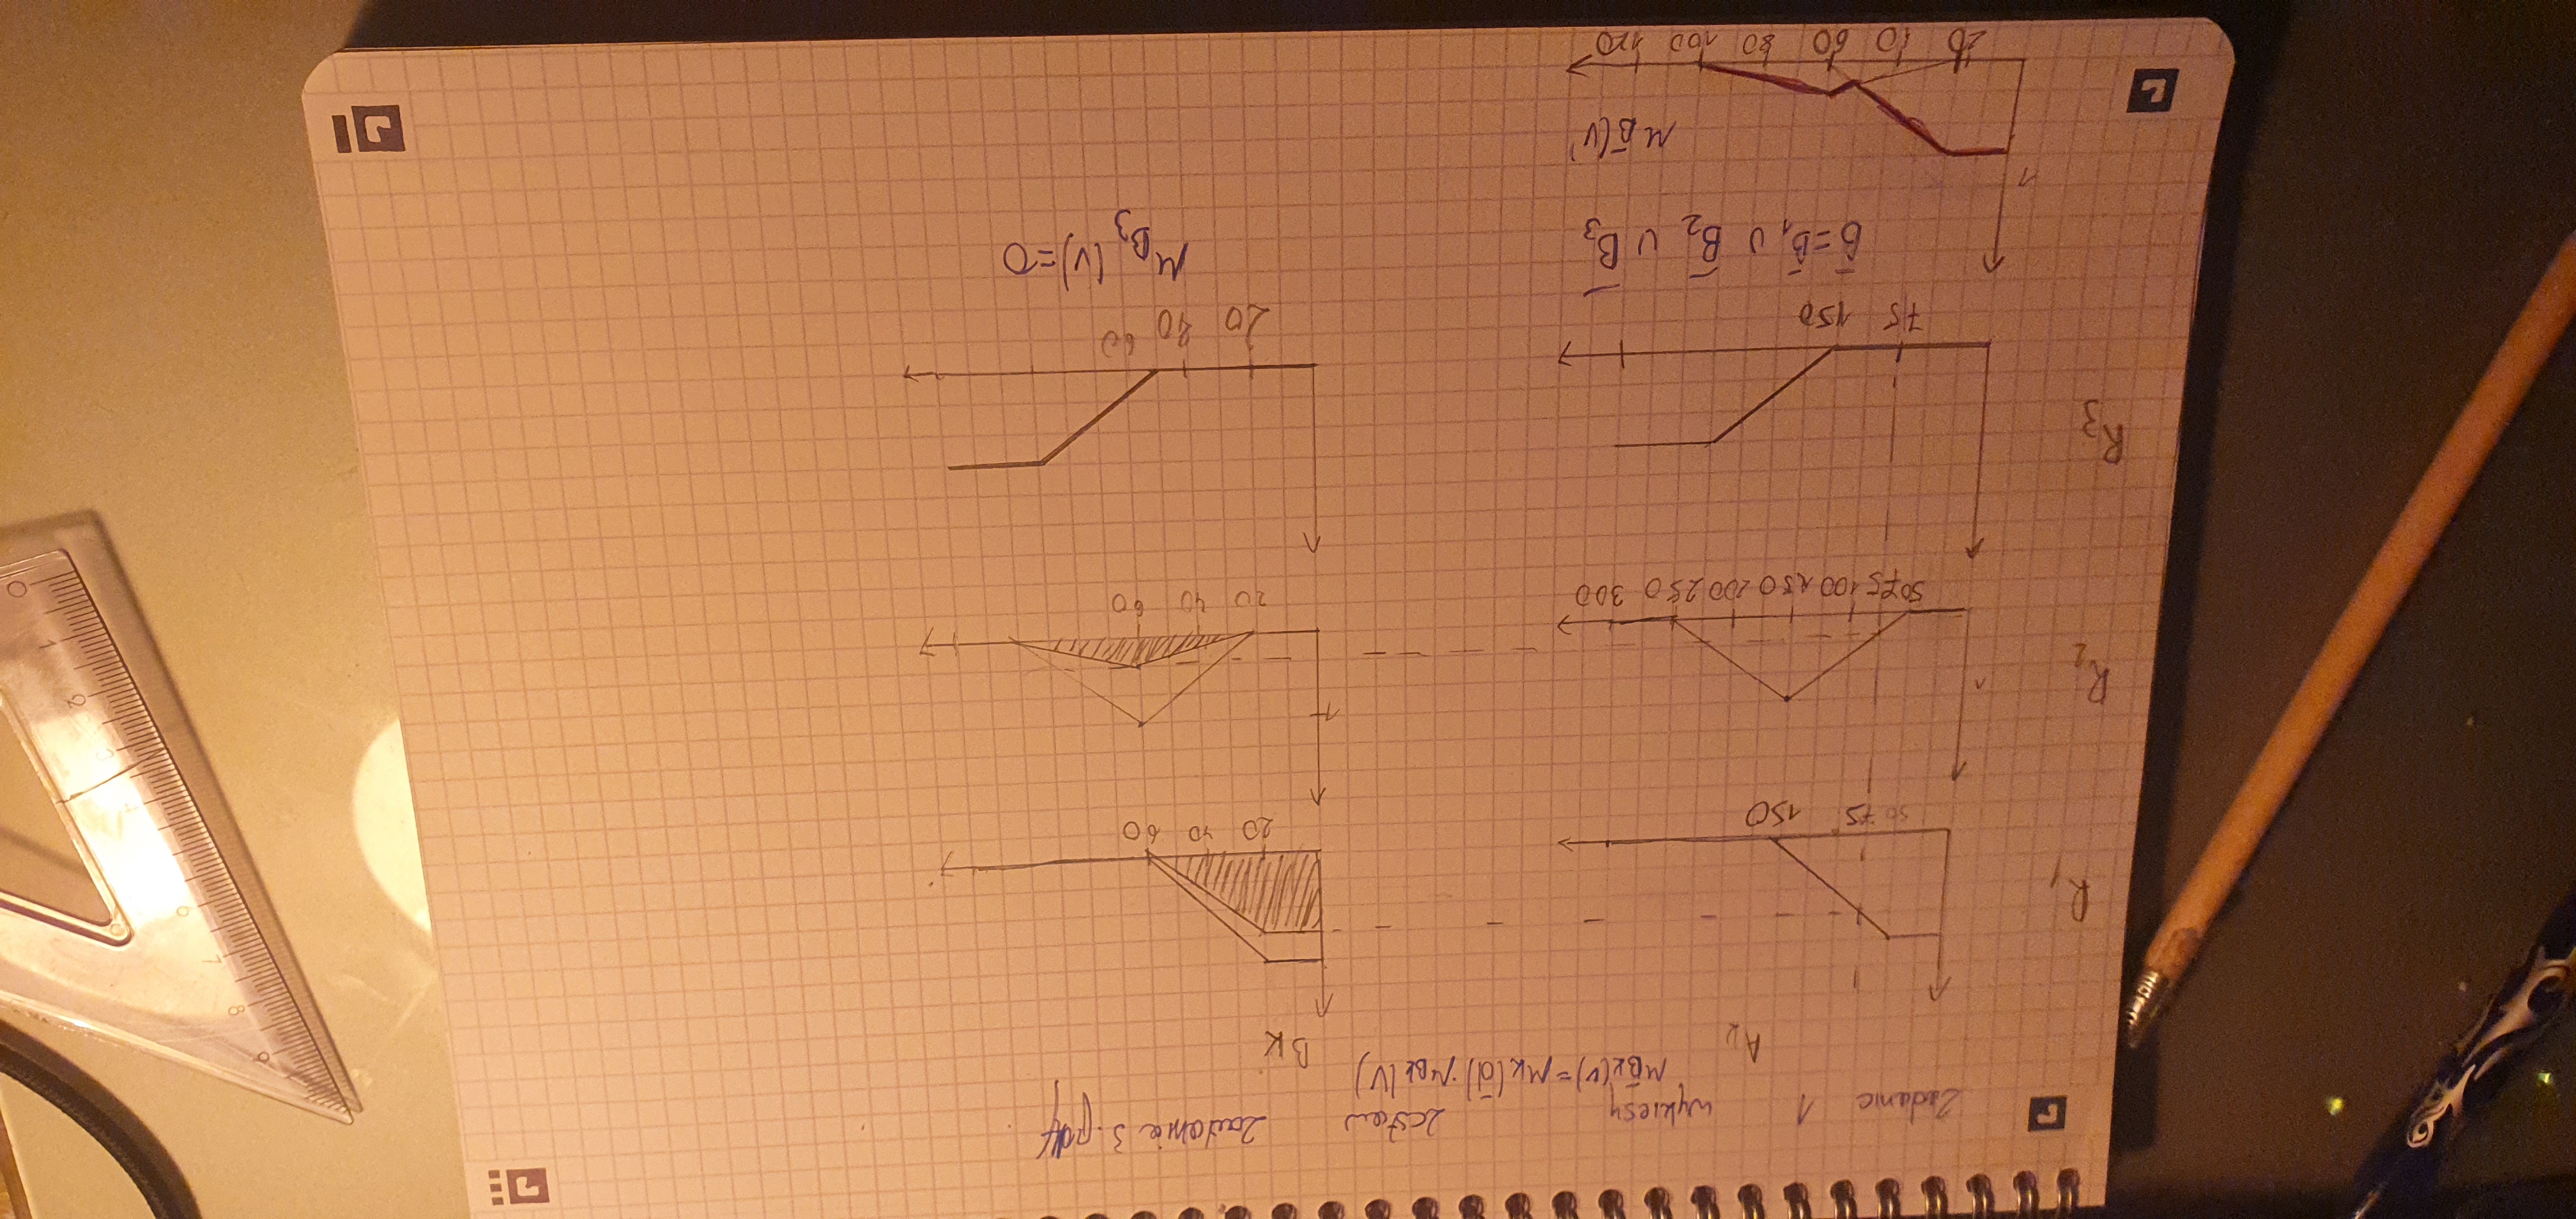 Zadanie 1 wykresy zestaw zadania 3.pdf
μB̄k(v)=μk(ā)·μBk(v)
Ak Bk
R1
50 75 150
20 40 60
R2
50 75 100 150 200 250 300
20 40 60
R3
75 150
20 40 60
B̄=B̄1∪B̄2∪B̄3
μB3(v)=0
μB̄(v)
1
20 40 60 80 100 120
0 1 2 3 4 6 7 8 9